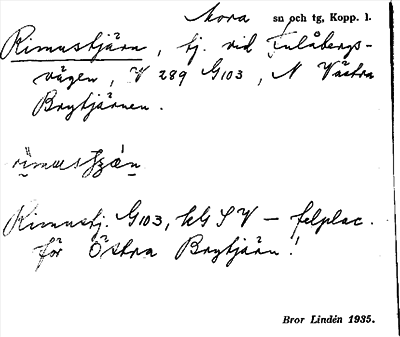 Mora sn och tg, Kopp. l.
Rimustjärn, tj. vid Fulåbergs-
vägen, V 289 G103, N Västra
Brytjärnen.
Rimustj. G103, kG SV — felplac.
för Östra Brytjärn!
Bror Lindén 1935.